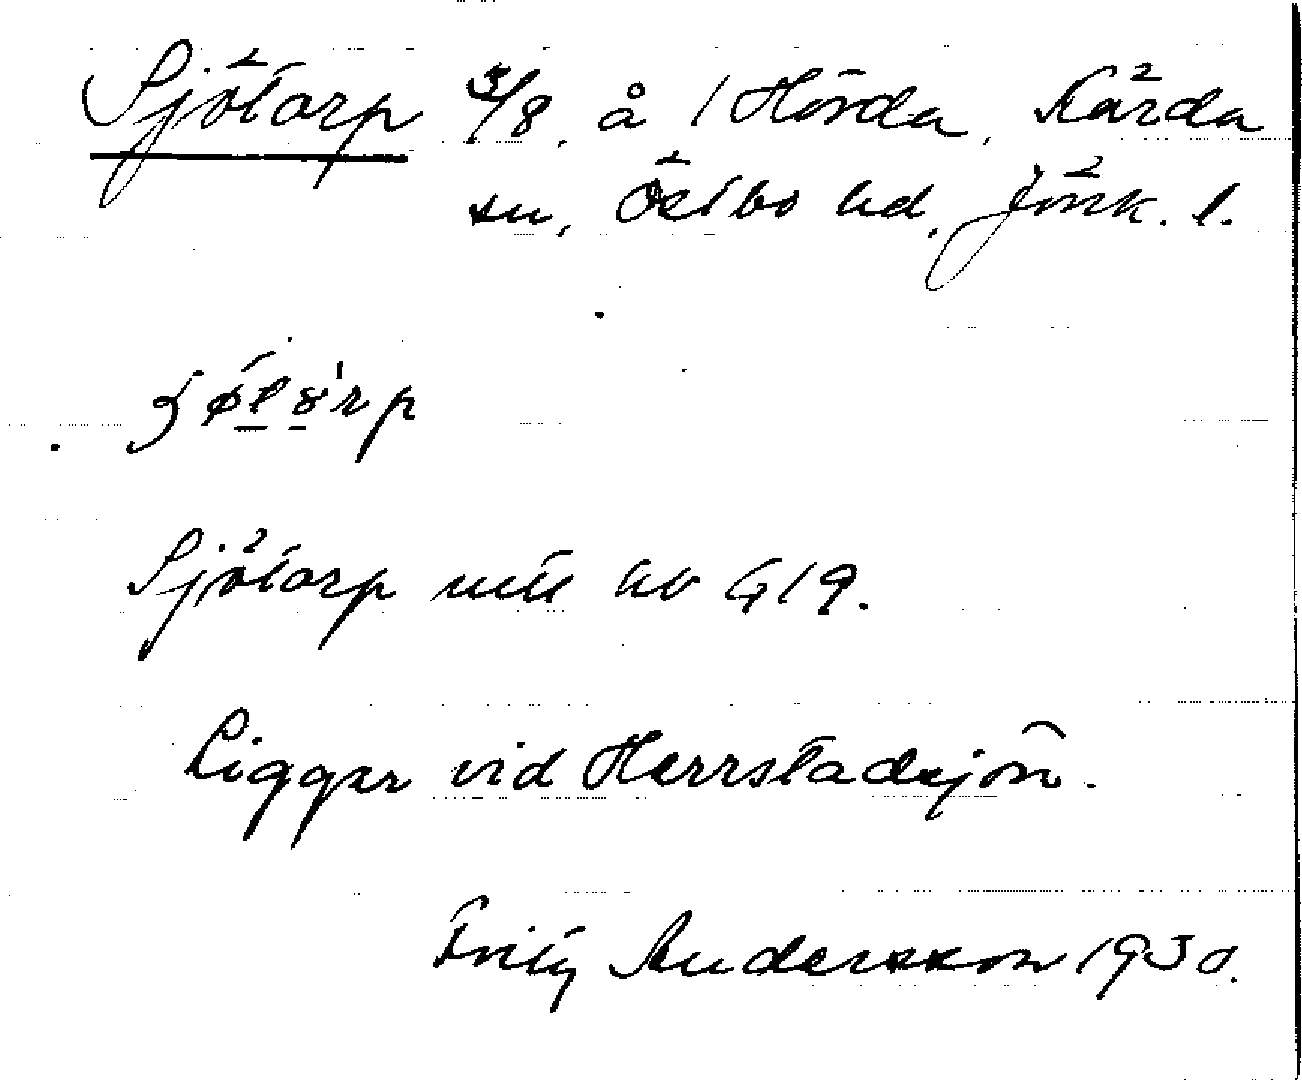 Sjötorp 3/8, å 1 Hörda, Kärda
sn, Östbo hd, Jönk. l.
Sjötorp mtl hb G 19.
Ligger vid Herrstadsjön.
Fritz Andersson 1930.